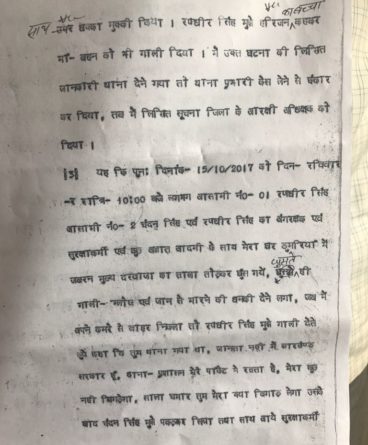 कासच्चा
साथ उपर धक्का मुक्की किया । रणधीर सिंह मुझे हरिजन कहकर
माँ- बहन को भी गाली दिया । मैं उक्त घटना की लिखित
जानकारी थाना देने गया तो थाना प्रभारी केस लेने से इंकार
कर दिया, तब मैं लिखित सूचना जिला के आरक्षी अधिक्षक को
दिया ।
[5] यह कि पुनः दिनांक- 15/10/2017 को दिन- रविवार
-र रात्रि- 10:00 को लगभग आसामी नं०- 01 रणधीर सिंह
आसामी नं०- 2 चंदन सिंह एवं रणधीर सिंह का अंगरक्षक एवं
सुरक्षाकर्मी एवं कुछ अज्ञात आदमी के साथ मेरा घर डुमरियाँ में
जबरन मुख्य दरवाजा का ताला तोड़कर घुस गये, घुसते ही
गाली- गलौज एवं जान से मारने की धमकी देने लगा, जब मैं
अपने कमरे से बाहर निकला तो रणधीर सिंह मुझे गाली देते
हुये कहा कि तुम थाना गया था, जानता नहीं मैं झारखण्ड
सरकार हूँ, थाना- प्रशासन मेरे पॉकेट में रहता है, मेरा कुछ
नहीं बिगड़ेगा, साला चमार तुम मेरा क्या बिगाड़ लेगा उसके
बाद चंदन सिंह मुझे पकड़कर लिया तथा साथ आये सुरक्षाकर्मी